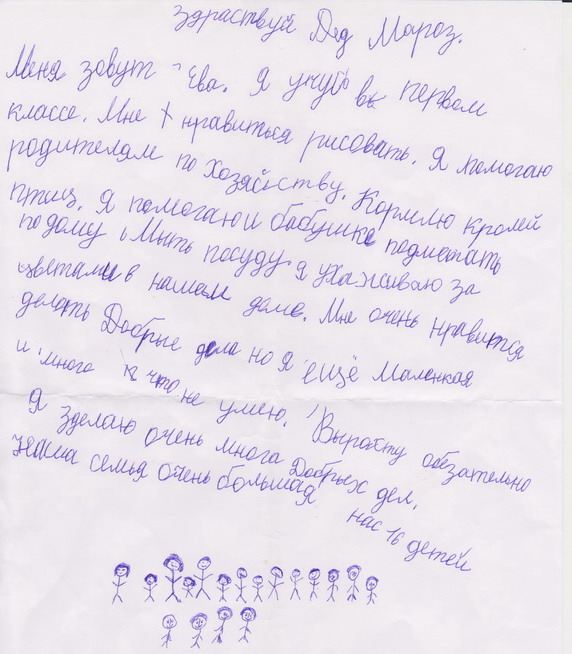 здраствуй Дед Мароз.
Меня зовут Ева. Я учусь вк первом
классе. Мне нравиться рисовать. Я помогаю
родителям по хозяйству. Кормлю кролей
птиц. Я помогаю и бабушке подметать
по дому, Мыть посуду я ухаживаю за
цветами в нашем доме. Мне очень нравится
делать Добрые дела но я ещё Маленкая
и много что не умею. Вырасту обезательно
Я зделаю очень многа Добрых дел.
Наша семья очень большая нас 16 детей